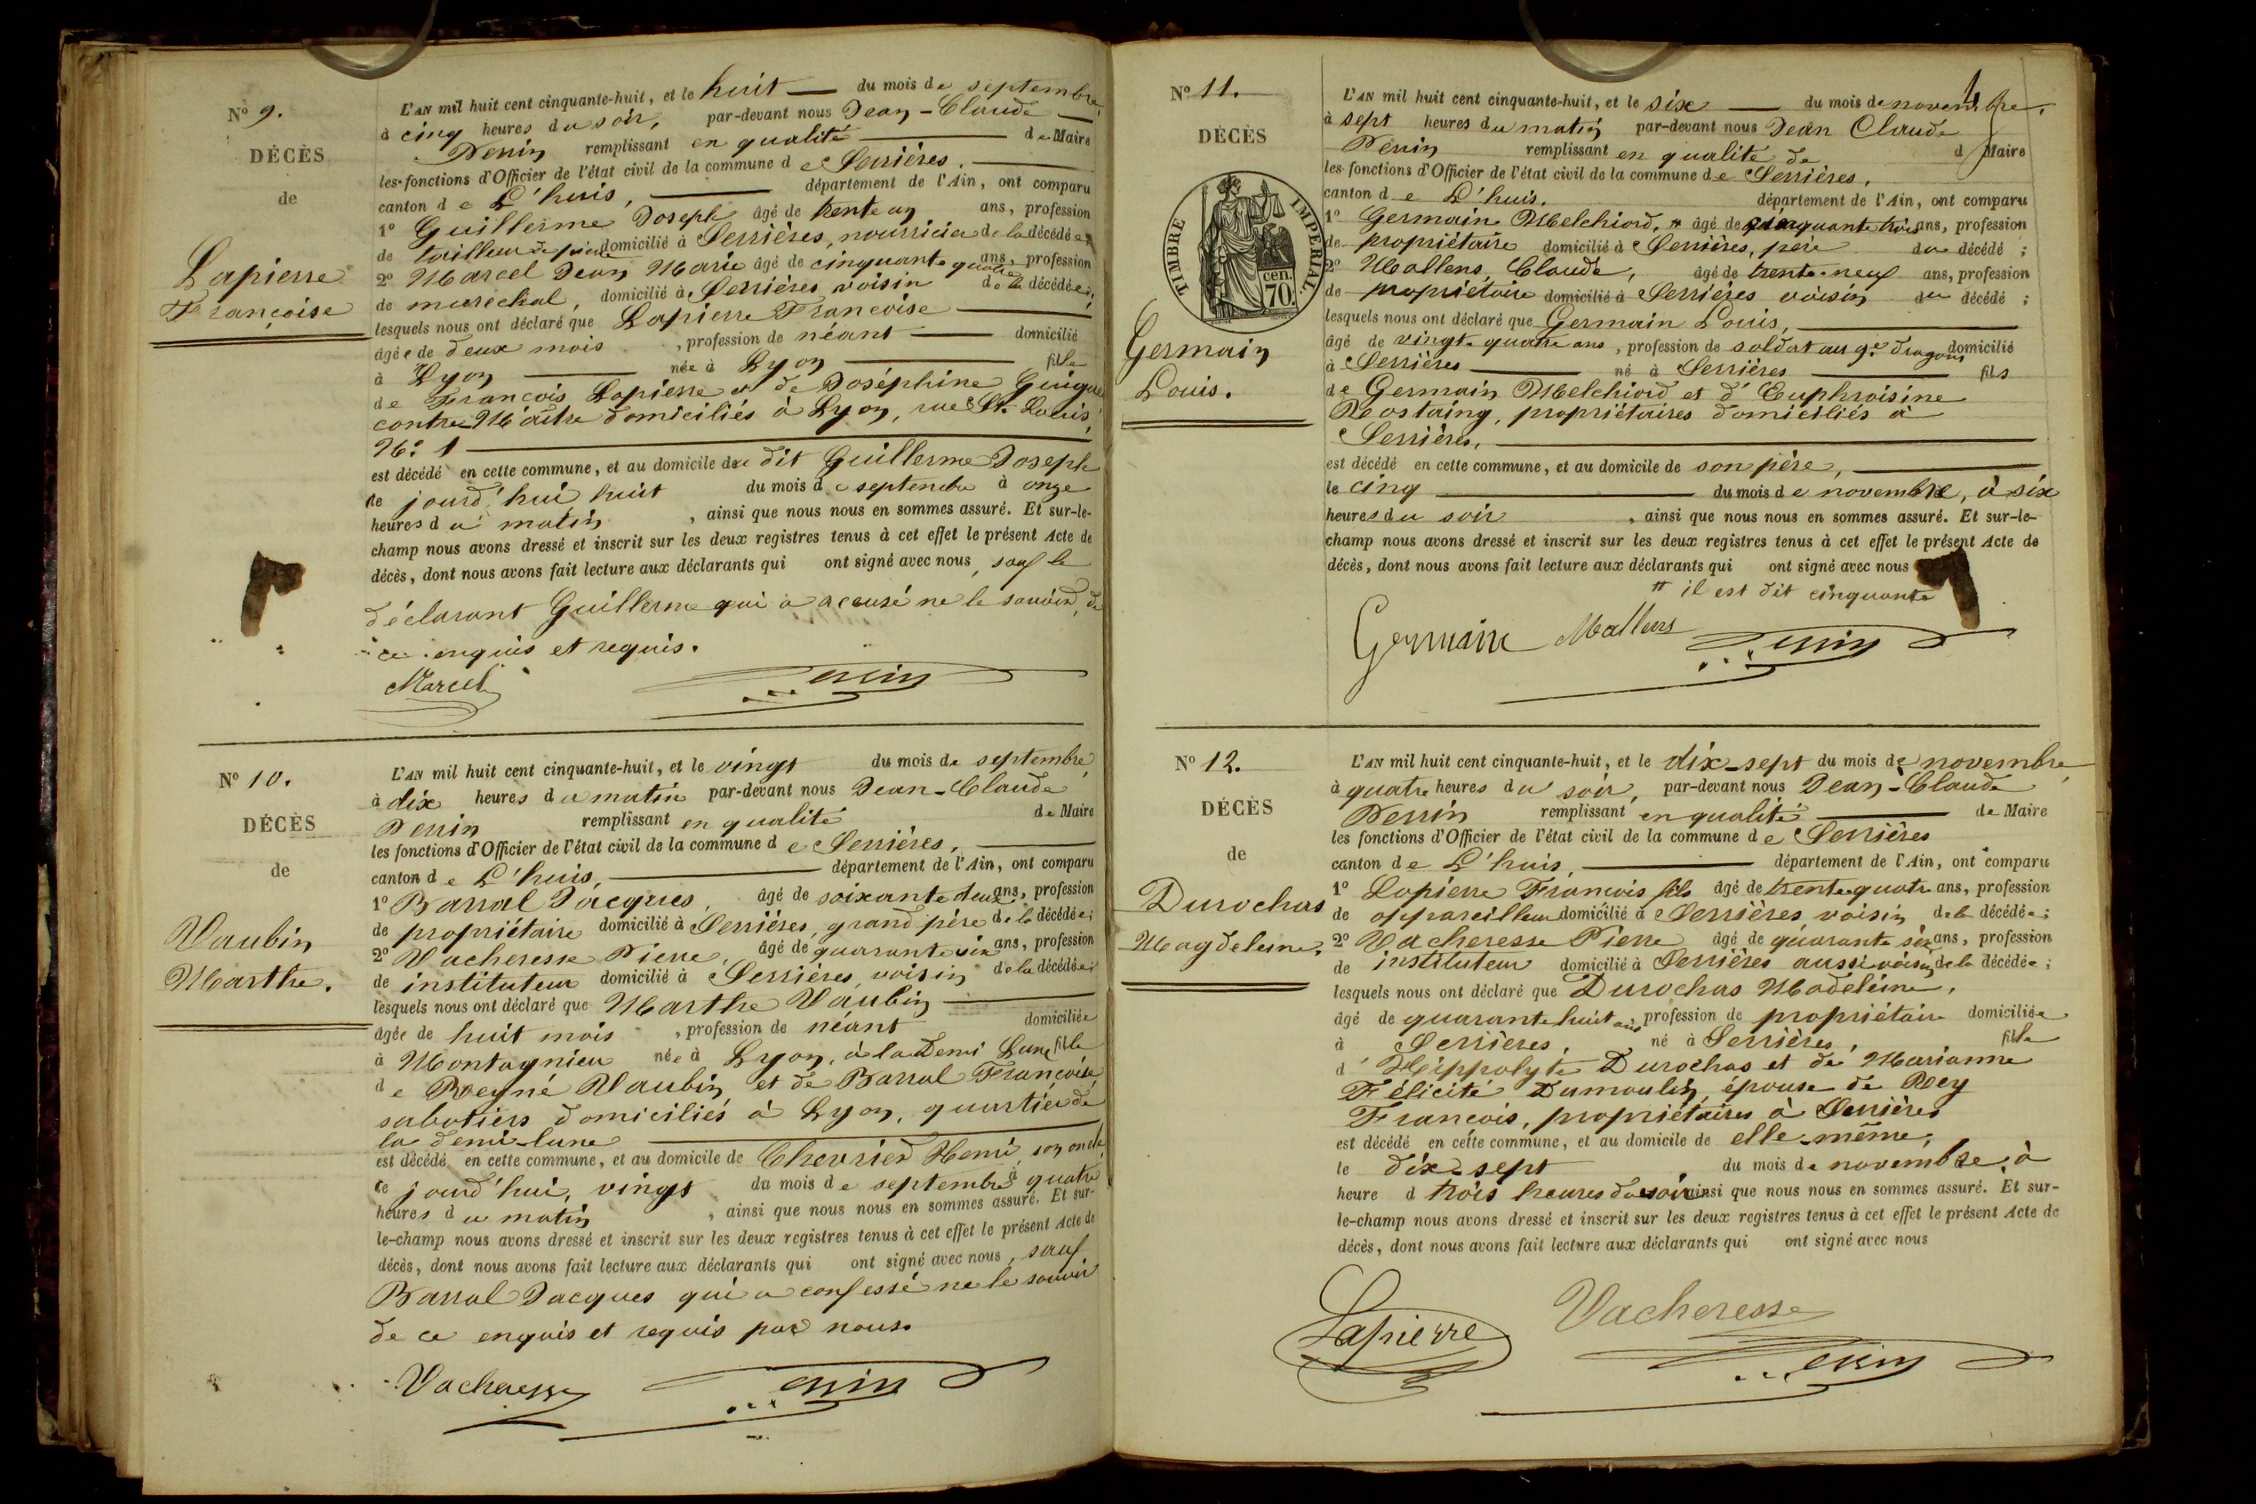 Nº 9.
DÉCÈS
de
Lapierre
Françoise
L'AN mil huit cent cinquante-huit, et le huit du mois de septembre,
à cinq heures du soir, par-devant nous Jean-Claude
Perrin remplissant en qualité de Maire
les fonctions d'Officier de l'état civil de la commune de Serrières,
canton de L'huis, département de l'Ain, ont comparu
1º Guillerme Joseph âgé de trente un ans, profession
de tailleur de pierre domicilié à Serrières, nourricier de la décédée;
2º Marcel Jean Marie âgé de cinquante quatre ans, profession
de maréchal, domicilié à Serrières voisin de la décédée;
lesquels nous ont déclaré que Lapierre Françoise
âgée de deux mois, profession de néant domicilié
à Lyon née à Lyon fille
de François Lapierre et de Joséphine Guigue
contre-Maître domiciliés à Lyon, rue St. Louis,
Nº 1
est décédé en cette commune, et au domicile du dit Guillerme Joseph
ce jourd'hui huit du mois de septembre à onze
heures du matin, ainsi que nous nous en sommes assuré. Et sur-le-
champ nous avons dressé et inscrit sur les deux registres tenus à cet effet le présent Acte de
décès, dont nous avons fait lecture aux déclarants qui ont signé avec nous, sauf le
déclarant Guillerme qui a accusé ne le savoir, de
ce enquis et requis.
Marcel Perrin
Nº 10.
DÉCÈS
de
Vaubin
Marthe.
L'AN mil huit cent cinquante-huit, et le vingt du mois de septembre
à dix heures du matin par-devant nous Jean-Claude
Perrin remplissant en qualité de Maire
les fonctions d'Officier de l'état civil de la commune de Serrières,
canton de L'huis, département de l'Ain, ont comparu
1º Barral Jacques, âgé de soixante deux ans, profession
de propriétaire domicilié à Serrières, grand père de la décédée;
2º Vacheresse Pierre, âgé de quarante six ans, profession
de instituteur domicilié à Serrières, voisin de la décédée;
lesquels nous ont déclaré que Marthe Vaubin
âgée de huit mois, profession de néant domiciliée
à Montagnieu née à Lyon, à la Demi Lune fille
de Reyné Vaubin et de Barral Françoise
sabotiers domiciliés à Lyon, quartier de
la demi-lune
est décédé en cette commune, et au domicile de Chevrier Henri son oncle
ce jourd'hui, vingt du mois de septembre à quatre
heures du matin, ainsi que nous nous en sommes assuré. Et sur-
le-champ nous avons dressé et inscrit sur les deux registres tenus à cet effet le présent Acte de
décès, dont nous avons fait lecture aux déclarants qui ont signé avec nous, sauf
Barral Jacques qui a confessé ne le savoir
de ce enquis et requis par nous.
Vacheresse Perrin
Nº 11.
DÉCÈS
TIMBRE IMPERIAL
cen.
70.
Germain
Louis.
L'AN mil huit cent cinquante-huit, et le six du mois de novembre,
à sept heures du matin par-devant nous Jean Claude
Perrin remplissant en qualité de d Maire
les fonctions d'Officier de l'état civil de la commune de Serrières,
canton de L'huis. département de l'Ain, ont comparu
1º Germain Melchiord, # âgé de cinquante trois ans, profession
de propriétaire domicilié à Serrières, père du décédé;
2º Mallens Claude, âgé de trente-neuf ans, profession
de propriétaire domicilié à Serrières voisin du décédé;
lesquels nous ont déclaré que Germain Louis,
âgé de vingt-quatre ans, profession de soldat au 9e dragons domicilié
à Serrières né à Serrières fils
de Germain Melchiord et d'Euphroisine
Rostaing, propriétaires domiciliés à
Serrières,
est décédé en cette commune, et au domicile de son père,
le cinq du mois de novembre, à six
heures du soir, ainsi que nous nous en sommes assuré. Et sur-le-
champ nous avons dressé et inscrit sur les deux registres tenus à cet effet le présent Acte de
décès, dont nous avons fait lecture aux déclarants qui ont signé avec nous
# il est dit cinquante
Germain Mallens Perrin
Nº 12.
DÉCÈS
de
Durochas
Magdeleine.
L'AN mil huit cent cinquante-huit, et le dix-sept du mois de novembre
à quatre heures du soir, par-devant nous Jean-Claude
Perrin remplissant en qualité de Maire
les fonctions d'Officier de l'état civil de la commune de Serrières
canton de L'huis, département de l'Ain, ont comparu
1º Lapierre François fils âgé de trente quatre ans, profession
de appareilleur domicilié à Serrières voisin de la décédée;
2º Vacheresse Pierre âgé de quarante six ans, profession
de instituteur domicilié à Serrières aussi voisin de la décédée;
lesquels nous ont déclaré que Durochas Madeleine,
âgé de quarante huit ans profession de propriétaire domiciliée
à Serrières, né à Serrières, fille
d'Hippolyte Durochas et de Marianne
Félicité Dumoulin, épouse de Rey
François, propriétaires à Serrières
est décédé en cette commune, et au domicile de elle-même,
le dix-sept du mois de novembre, à
heure d trois heures du soir, ainsi que nous nous en sommes assuré. Et sur-
le-champ nous avons dressé et inscrit sur les deux registres tenus à cet effet le présent Acte de
décès, dont nous avons fait lecture aux déclarants qui ont signé avec nous
Lapierre Vacheresse
Perrin